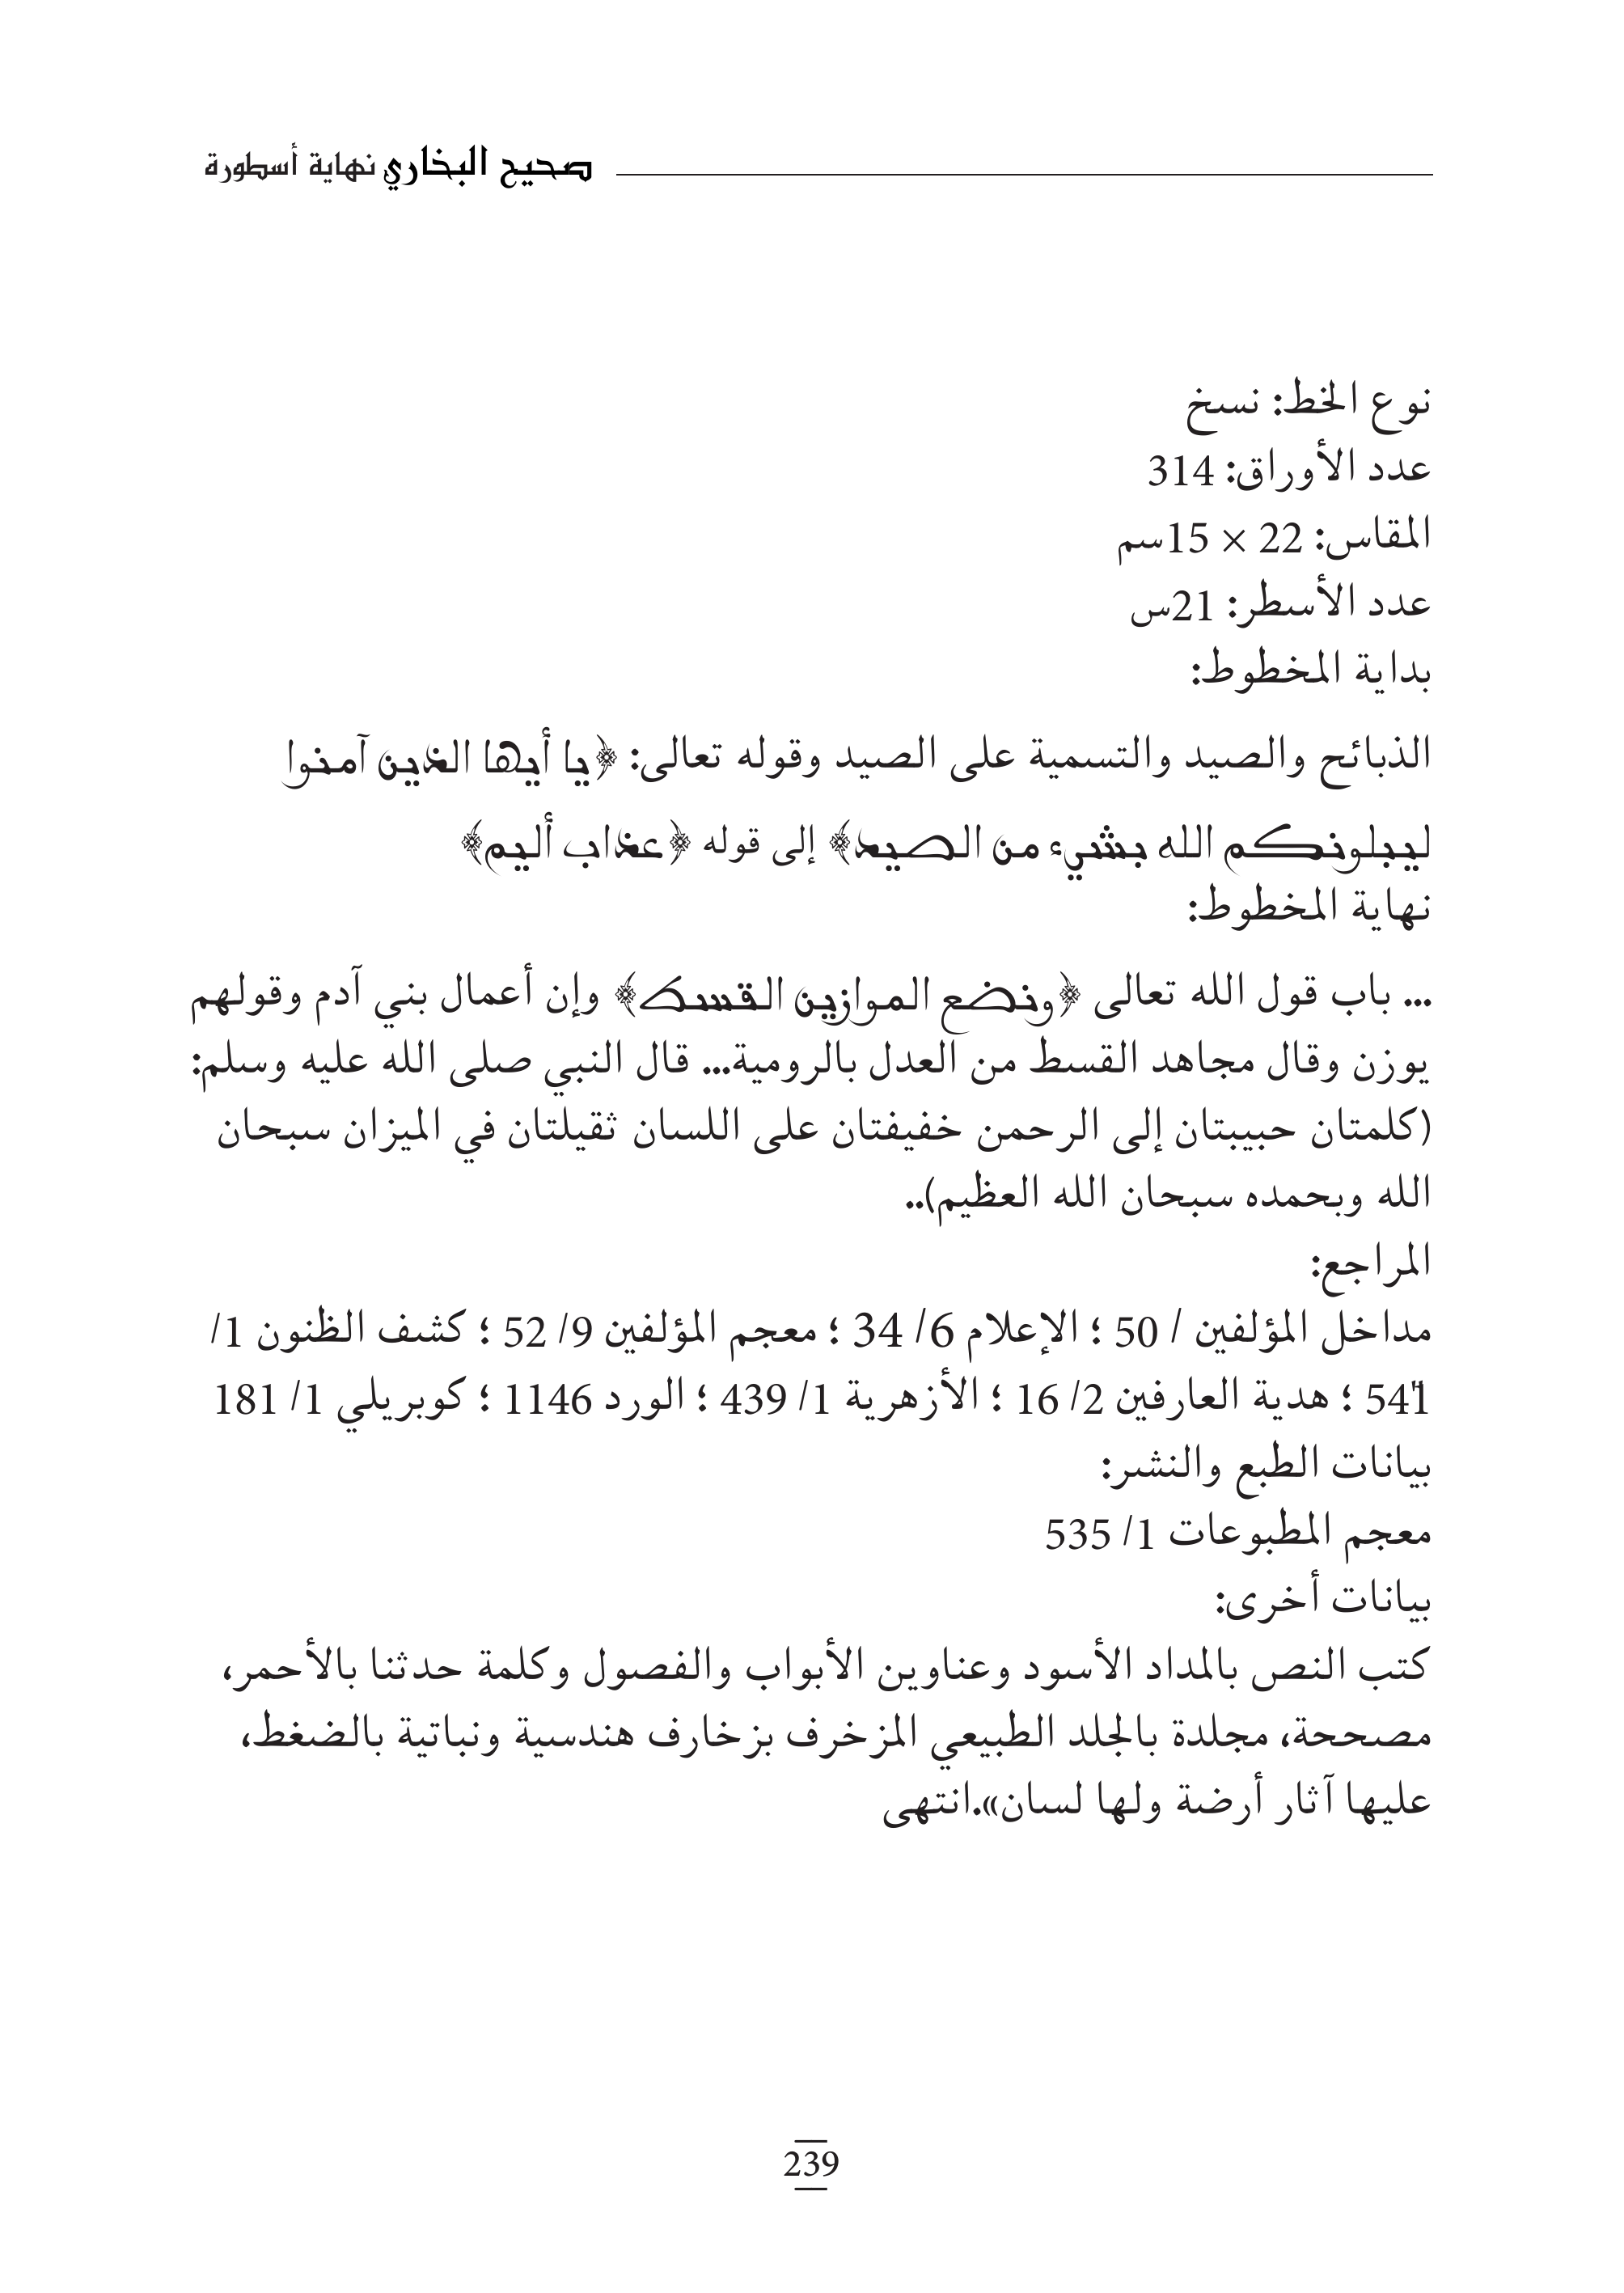 صحيح البخاري نهاية أسطورة
نوع الخط: نسخ
عدد الأوراق: 314
المقاس: 22 × 15سم
عدد الأسطر: 21س
بداية المخطوط:
الذبائح والصيد والتسمية على الصيد وقوله تعالى: ﴿يا أيها الذين آمنوا
ليبلونكم الله بشيء من الصيد﴾ إلى قوله ﴿عذاب أليم﴾
نهاية المخطوط:
... باب قول الله تعالى ﴿ونضع الموازين القسط﴾ وإن أعمال بني آدم وقولهم
يوزن وقال مجاهد القسط من العدل بالرومية... قال النبي صلى الله عليه وسلم:
(كلمتان حبيبتان إلى الرحمن خفيفتان على اللسان ثقيلتان في الميزان سبحان
الله وبحمده سبحان الله العظيم)..
المراجع:
مداخل المؤلفين / 50 ؛ الإعلام 6/ 34 ؛ معجم المؤلفين 9/ 52 ؛ كشف الظنون 1/
541 ؛ هدية العارفين 2/ 16 ؛ الأزهرية 1/ 439 ؛ الورد 1146 ؛ كوبريلي 1/ 181
بيانات الطبع والنشر:
معجم المطبوعات 1/ 535
بيانات أخرى:
كتب النص بالمداد الأسود وعناوين الأبواب والفصول وكلمة حدثنا بالأحمر،
مصححة، مجلدة بالجلد الطبيعي المزخرف بزخارف هندسية ونباتية بالضغط،
عليها آثار أرضة ولها لسان».انتهى
239